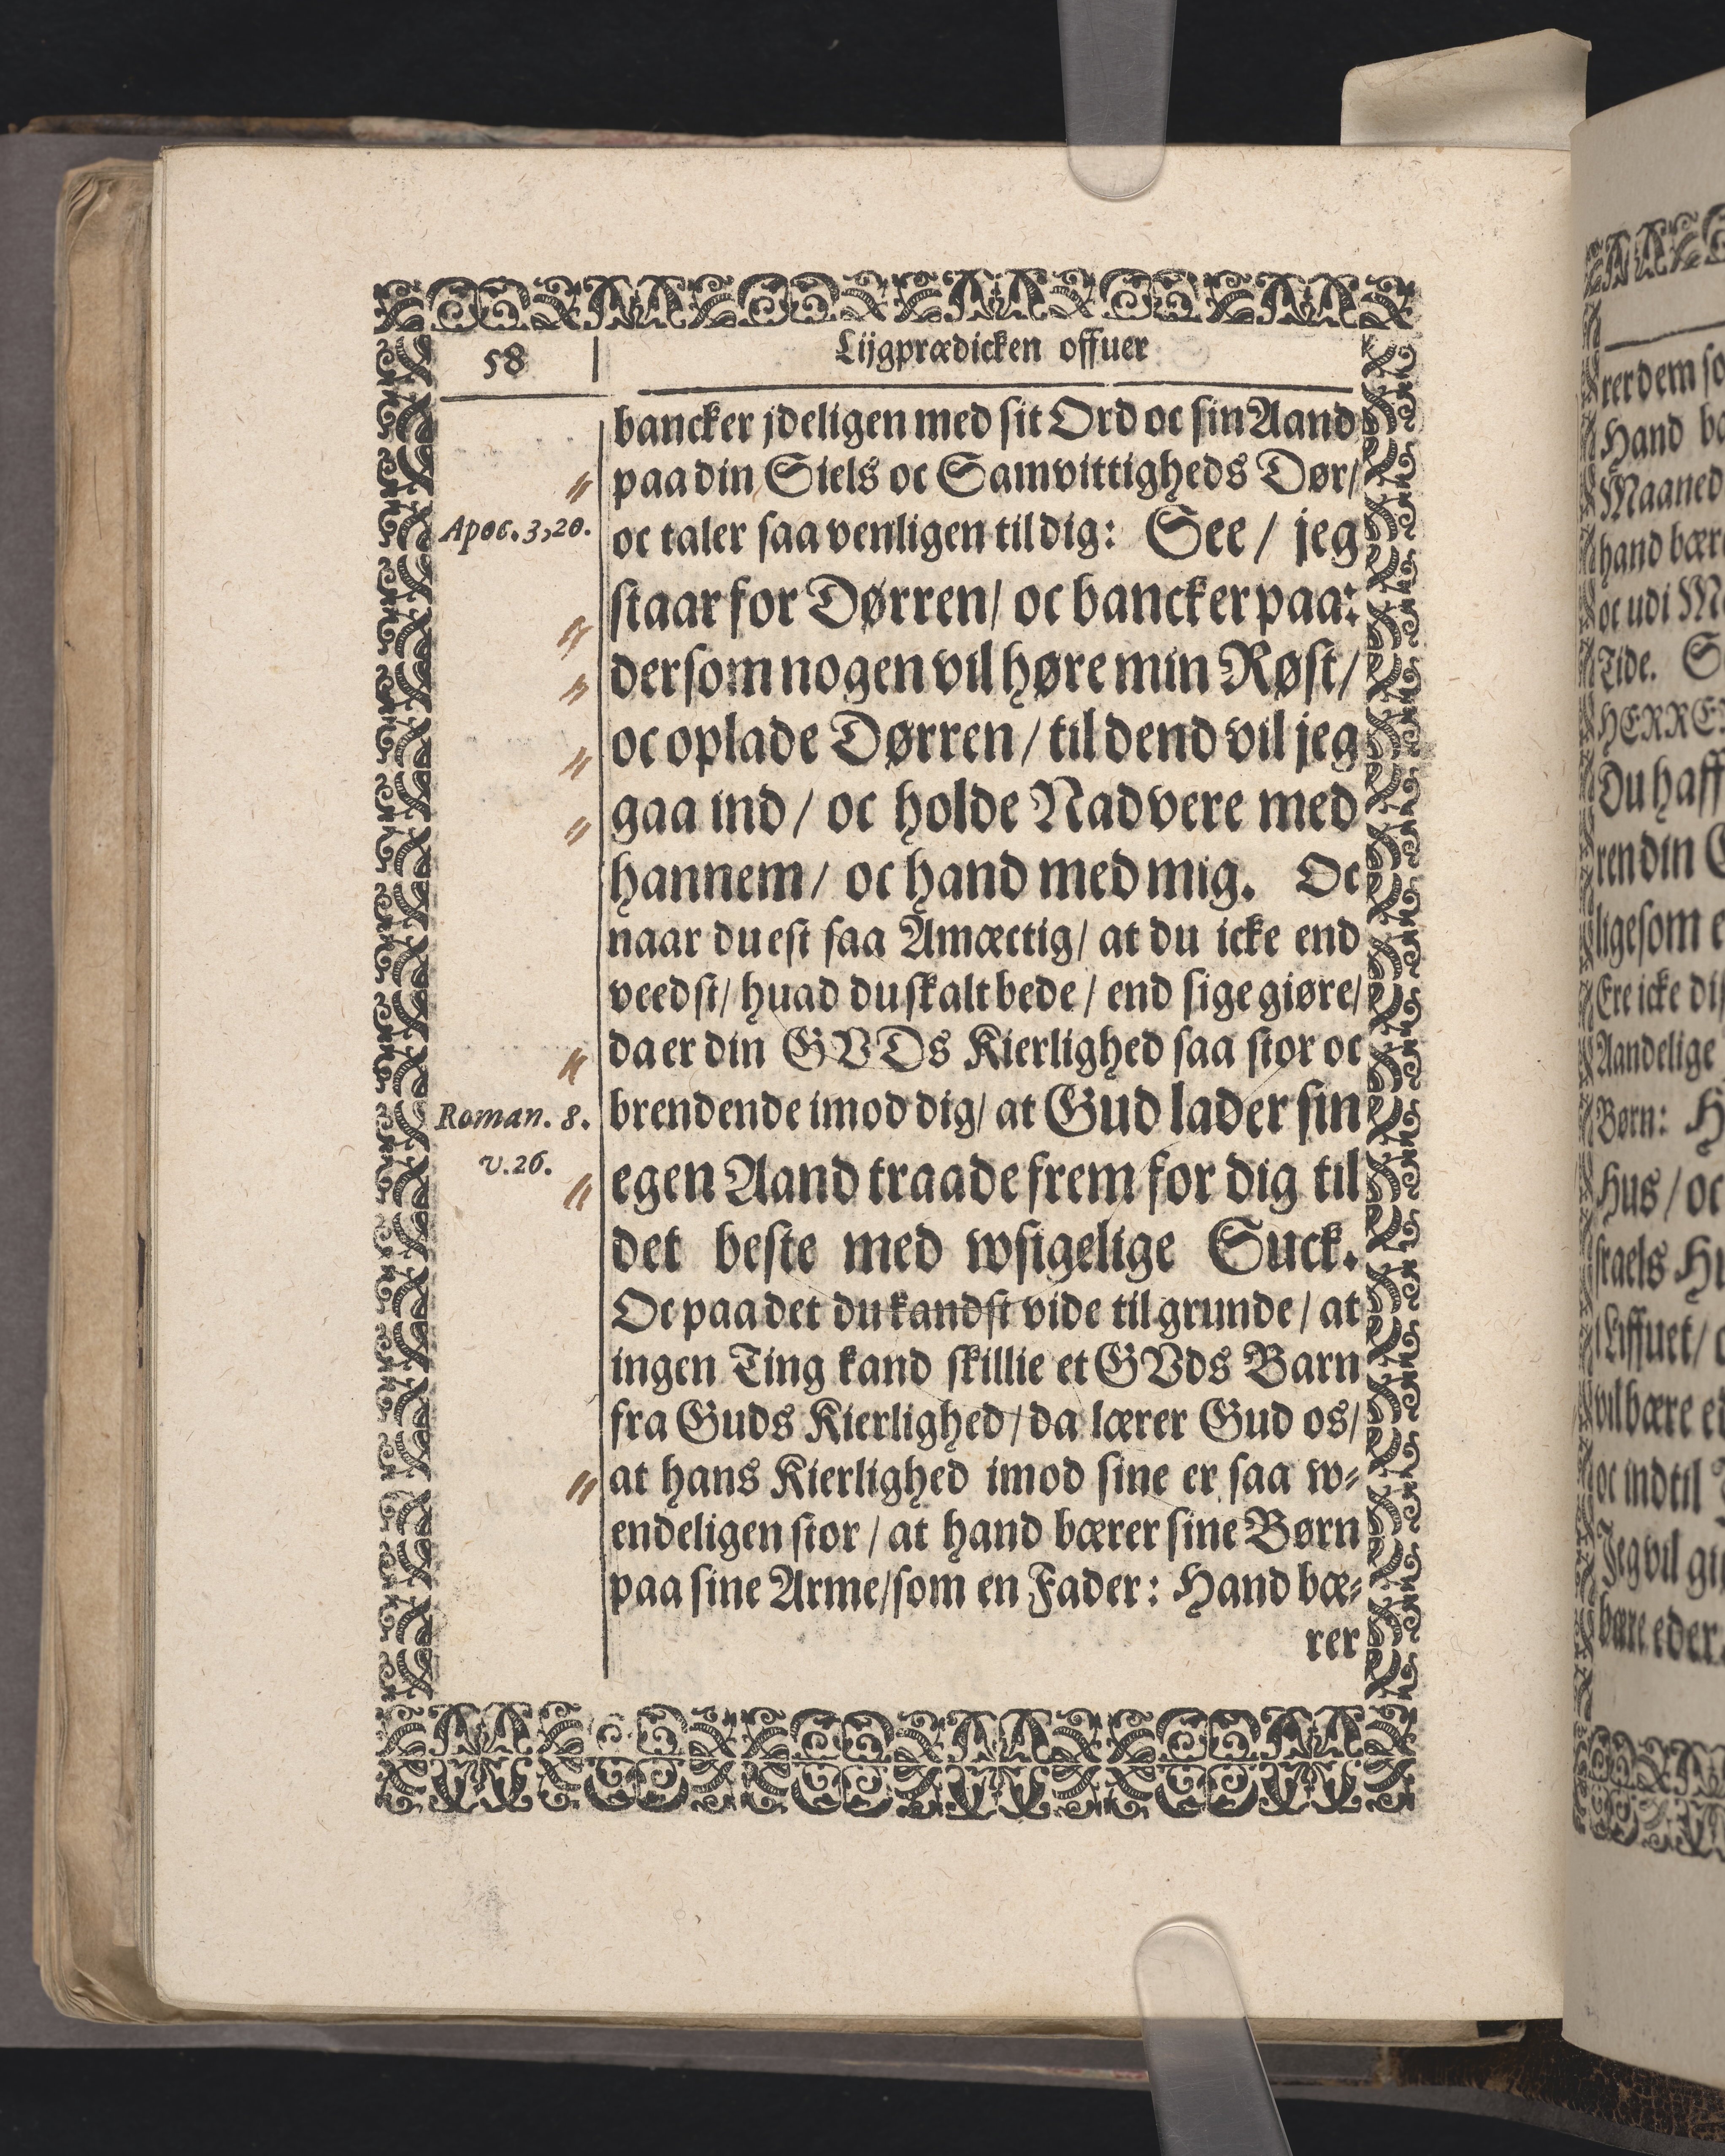 58
Lijgprædicken offuer
bancker jdeligen med sit Ord oc sin Aand
paa din Siels oc Samvittigheds Dør/
Apoc. 3,20.
oc taler saa venligen til dig: See / jeg
staar for Dørren/ oc bancker paa:
dersom nogen vil høre min Røst/
oc oplade Dørren / til dend vil jeg
gaa ind / oc holde Nadvere med
hannem / oc hand med mig. Oc
naar du est saa Amæctig/ at du icke end
veedst/ huad du skalt bede / end sige giøre/
da er din GVDs Kierlighed saa stor oc
Roman. 8.
v.26.
brendende imod dig/ at Gud lader sin
egen Aand traade frem for dig til
det beste med wsigelige Suck.
Oc paa det du kandst vide til grunde / at
ingen Ting kand skillie et GVds Barn
fra Guds Kierlighed / da lærer Gud os/
at hans Kierlighed imod sine er saa w⸗
endeligen stor / at hand bærer sine Børn
paa sine Arme/som en Fader: Hand bæ⸗
rer
rer dem so
Hand bæ
Maaned
hand bær
oc udi M
Tide. S
HERRE
Du haff
ren din
ligesom e
Ere icke di
Aandelige
Børn: H
Hus / oc
sraels Hu
i Liffuet/
vil bære e
oc indtil
Jeg vil gi
bære eder